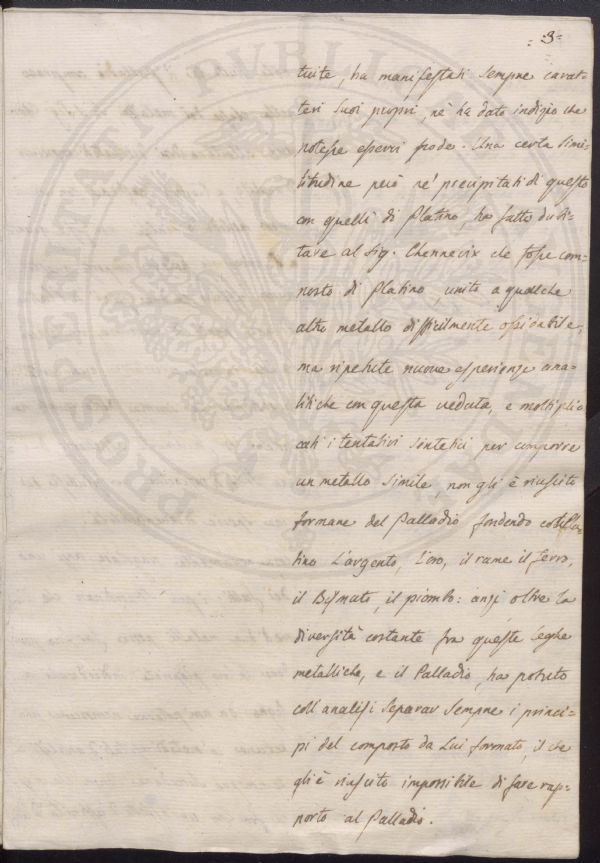 :3:
tuite, ha manifestati sempre carat=
teri suoi propri, nè ha dato indizio che
potesse esservi frode. Una certa simi=
litudine però ne' precipitati di questo
con quelli di Platino, ha fatto dubi=
tare al Sig. Chennevix che fosse com=
posto di Platino, unito a qualche
altro metallo difficilmente ossidabile,
ma ripetute nuove esperienze ana=
litiche con questa veduta, e moltipli=
cati i tentativi sintetici per comporre
un metallo simile, non gli è riuscito
formare del Palladio fondendo col Pla=
tino L'argento, l'oro, il rame il ferro,
il Bismuto, il piombo: anzi oltre la
diversità costante fra queste leghe
metalliche, e il Palladio, ha potuto
coll'analisi separar sempre i princi=
pi del composto da Lui formato, il che
gli è riuscito impossibile di fare rap=
porto al Palladio.